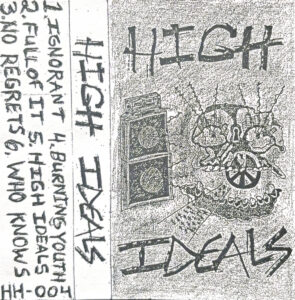 1. IGNORANT 4. BURNING YOUTH
2. FULL OF IT 5. HIGH IDEALS
3. NO REGRETS 6. WHO KNOWS
HIGH IDEALS
HIGH
IDEALS